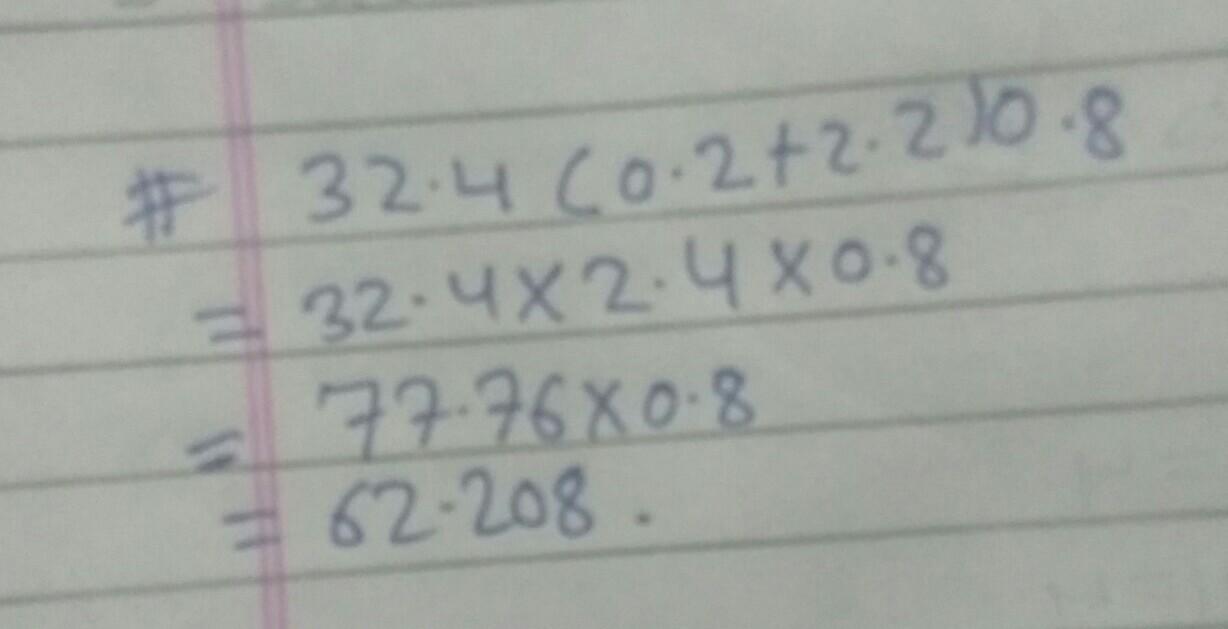 # 32.4 (0.2+2.2)0.8
= 32.4×2.4×0.8
= 77.76×0.8
= 62.208.